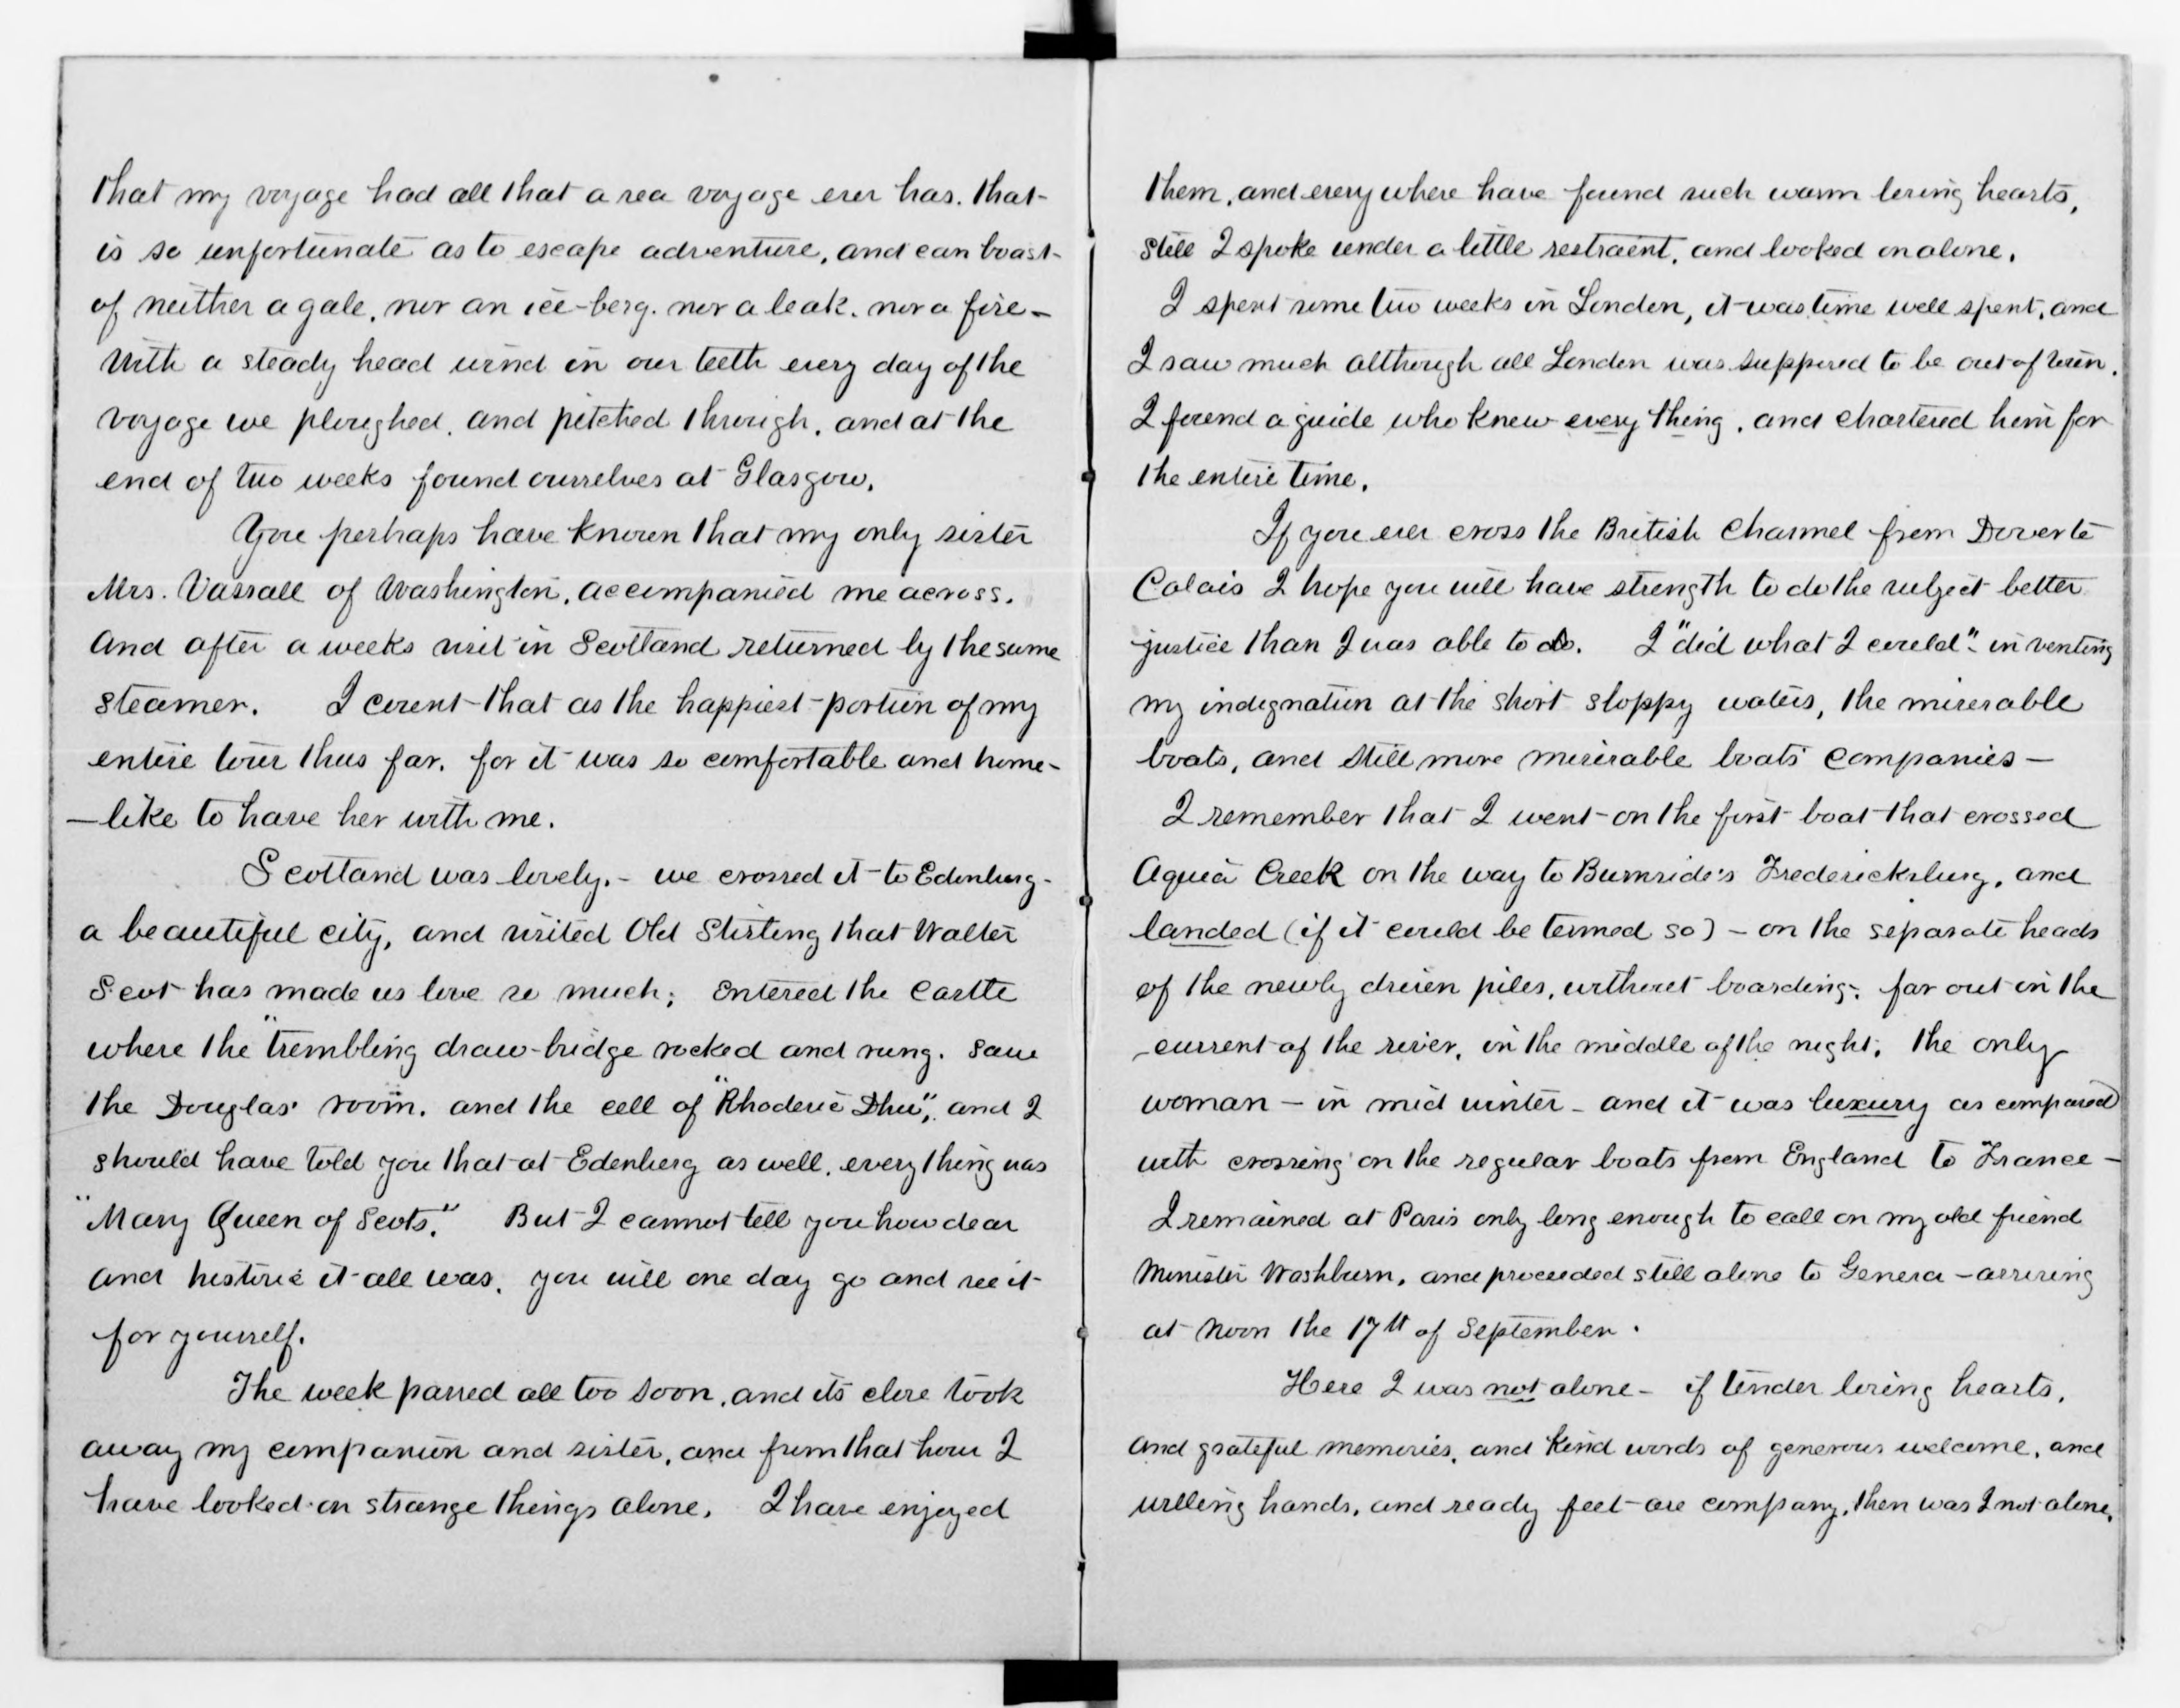 that my voyage had all that a sea voyage ever has. that-
is so unfortunate as to escape adventure, and can boast-
of neither a gale, nor an ice-berg. nor a leak. nor a fire -
With a steady head wind in our teeth every day of the
voyage we ploughed. and pitched through. and at the
end of two weeks found ourselves at Glasgow.
You perhaps have known that my only sister
Mrs. Vassall of Washington, accompanied me across.
And after a weeks visit in Scotland returned by the same
steamer. I count that as the happiest portion of my
entire tour thus far. for it was so comfortable and home-
-like to have her with me.
Scotland was lovely. - we crossed it to Edenburg -
a beautiful city, and visited Old Stirling that Walter
Scot has made us love so much; Entered the Castle
where the "trembling draw-bridge rocked and rung. Saw
the Douglas' room. and the cell of "Rhoderic Dhu", and I
should have told you that at Edenberg as well. every thing was
"Mary Queen of Scots." But I cannot tell you how dear
and historic it all was. you will one day go and see it
for yourself.
The week passed all too soon, and its close took
away my companion and sister, and from that hour I
have looked on strange things alone. I have enjoyed
them, and every where have found such warm loving hearts,
Still I spoke under a little restraint, and looked on alone.
I spent some two weeks in London, it was time well spent, and
I saw much although all London was supposed to be out of town.
I found a guide who knew every thing, and chartered him for
the entire time.
If you ever cross the British Channel from Dover to
Calais I hope you will have strength to do the subject better
justice than I was able to do. I "did what I could" in venting
my indignation at the short sloppy waters, the miserable
boats, and still more miserable boats companies —
I remember that I went on the first boat that crossed
Aquia Creek on the way to Burnside's Fredericksburg, and
landed (if it could be termed so) - on the separate heads
of the newly driven piles, without boarding; far out in the
current of the river, in the middle of the night. the only
woman - in mid winter - and it was luxury as compared
with crossing on the regular boats from England to France -
I remained at Paris only long enough to call on my old friend
Minister Washburn, and proceeded still alone to Geneva - arriving
at noon the 17th of September.
Here I was not alone - if tender loving hearts,
and grateful memories, and kind words of generous welcome, and
willing hands, and ready feet are company, then was I not alone.